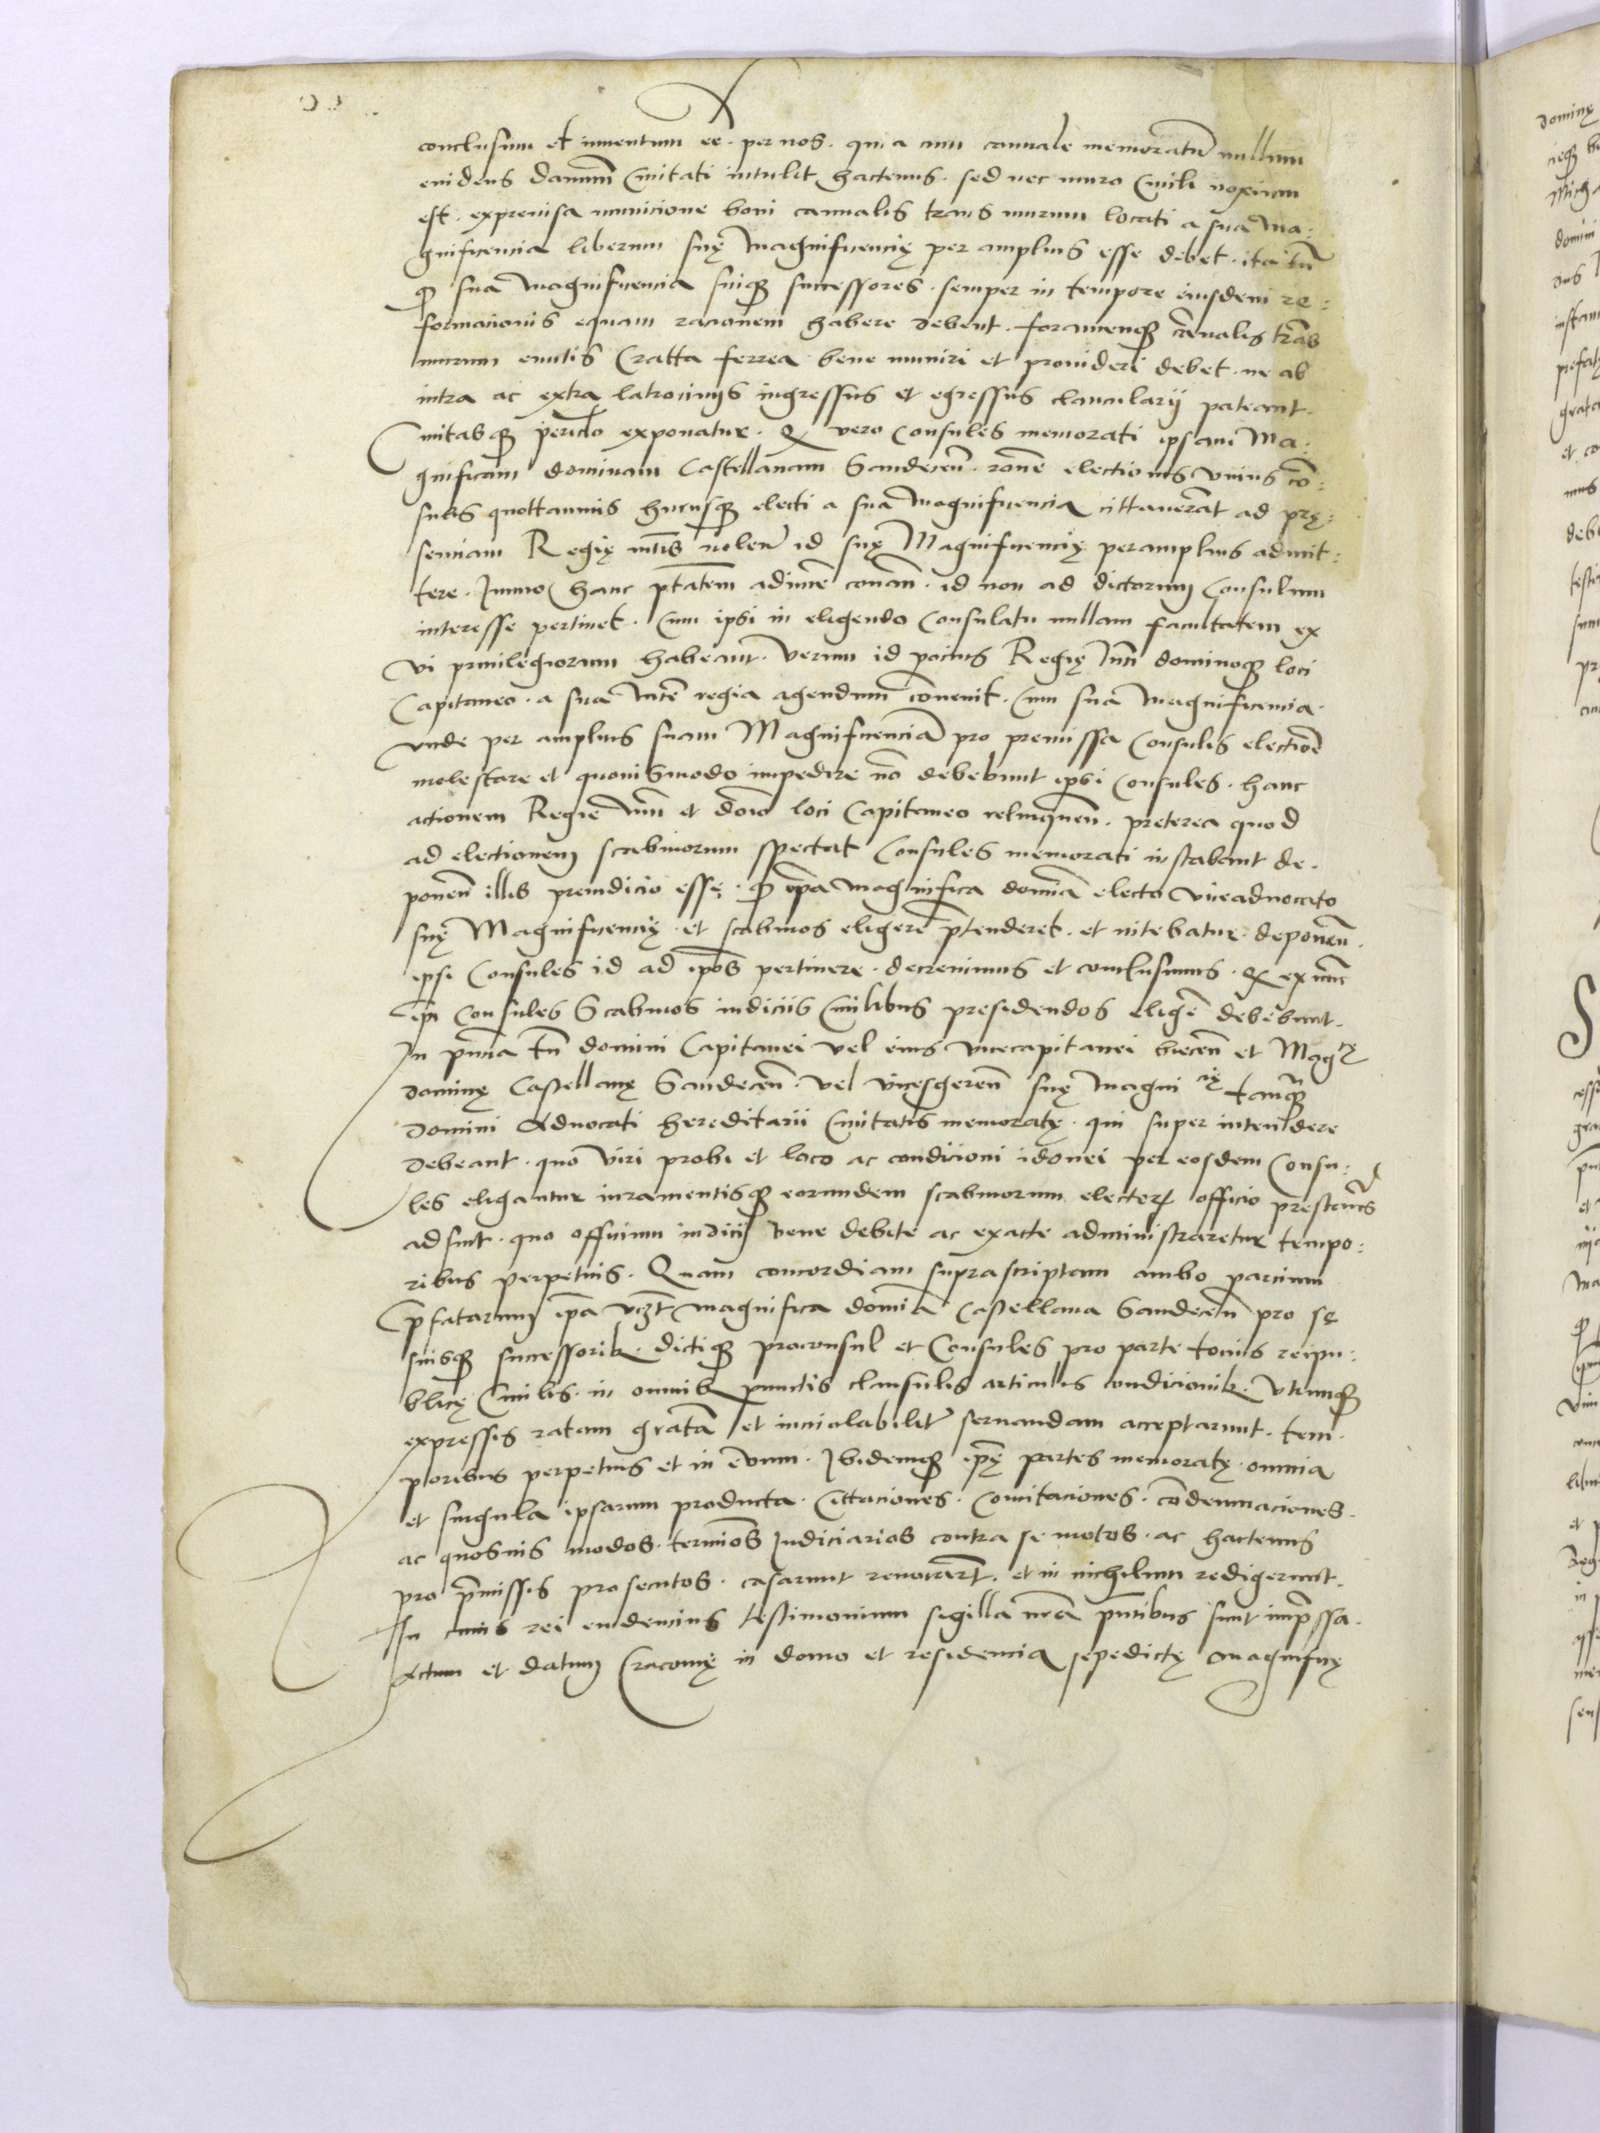 conclusum et inuentum eē · per nos · quia cum cannale memoratū nullum
euidens damnū Ciuitati intulit hactenus · sed nec muro Ciuili noxium
est · expreuisa municione boni cannalis trans murum locati a sua Ma:
gnificencia liberum suę Magnificencię per amplius esse debet · ita tñ
ꝙ sua Magnificencia suiqꝫ successores · semper in tempore eiusdem re:
formacionis equam racionem habere debent · foramenqꝫ cānalis trās
murum emitis Cratta ferrea bene muniri et prouideri debet · ne ab
intra ac extra latrocinijs ingressus et egressus clancularij pateant ·
Ciuitasqꝫ pericło exponatur · Qꝫ vero Consules memorati ipsam Ma:
gnificam dominam Castellanam Sandeceñ · rōne electionis vnius cō:
sulis quottannis hucusqꝫ electi a sua Magnificencia cittauerāt ad prę:
senciam Regię mtis nolen̄ id suę Magnificencię peramplius admit:
tere · Immo hanc ptātem adimē conan̄ · id non ad dictorum Consulum
interesse pertinet · Cum ipsi in eligendo Consulatu nullam facultatem ex
vi priuilegiorum habeant · verum id pocius Regię Mti dominoqꝫ loci
Capitaneo · a sua Mte regia agendum conuenit · Cum sua Magnificencia ·
vnde per amplius suam Magnificenciā pro premissa Consulis electiōe
molestare et quouismodo impedire nō debebunt ipsi Consules · hanc
actionem Regie Mti et dōīo loci Capitaneo relinquen̄ · preterea quod
ad electionem scabinorum spectat Consules memorati instabant de ·
ponen̄ illis preiudicio essę · ꝙ ipā Magnifica domīa electo viceaduocato
suę Magnificencię · et scabinos eligere p̄tenderet · et nitebatur · deponen̄ ·
ipsi Consules id ad ipōs pertinere · decreuimus et conclusimus · Qꝫ ex nūc
ipī Consules Scabinos iudiciis Ciuilibus presidendos eligē debebunt ·
In pñcia tñ domini Capitanei vel eius vicecapitanei biecen̄ et Magcę
dominę Castellanę Sandecen̄ · vel vicesgeren̄ suę Magnicię tanqꝫ
domini Aduocati hereditarii Ciuitatis memoratę · qui super intendere
debeant · quo viri probi et loco ac condicioni idonei per eosdem Consu:
les eligantur iuramentisqꝫ eorundem scabinorum electorꝝ officio prestandis
adsint · quo officium iudicij bene debite ac exacte administraretur tempo:
ribus perpetuis · Quam concordiam suprascriptam ambo parcium
p̄fatarum ipā vꝫt Magnifica domīa Castellana Sandecen̄ pro sę
suisqꝫ successoribꝫ · dictiqꝫ proconsul et Consules pro parte tocius reipu:
blicę Ciuilis · in omnibꝫ punctis clausulis articulis condicionibꝫ · vtrimqꝫ
expressis ratam gratā et inuiolabilit̄ seruandam acceptarunt · tem ·
poribus perpetuis et in ēuum · Ibidemqꝫ ipę partes memoratę · omnia
et singula ipsarum producta · Cittaciones · Comitaciones · cōdemnaciones ·
ac quosuis modos · terminos Iudiciarios contra se motos · ac hactenus
pro p̄missis prosecutos · casarunt reuocarūt · et in nichilum redigerunt ·
In cuius rei euidencius testimonium sigilla nr̄a pñtibus sunt imp̄ssa ·
Actum et datum Cracouię in domo et residencia sepedictę Magnificę